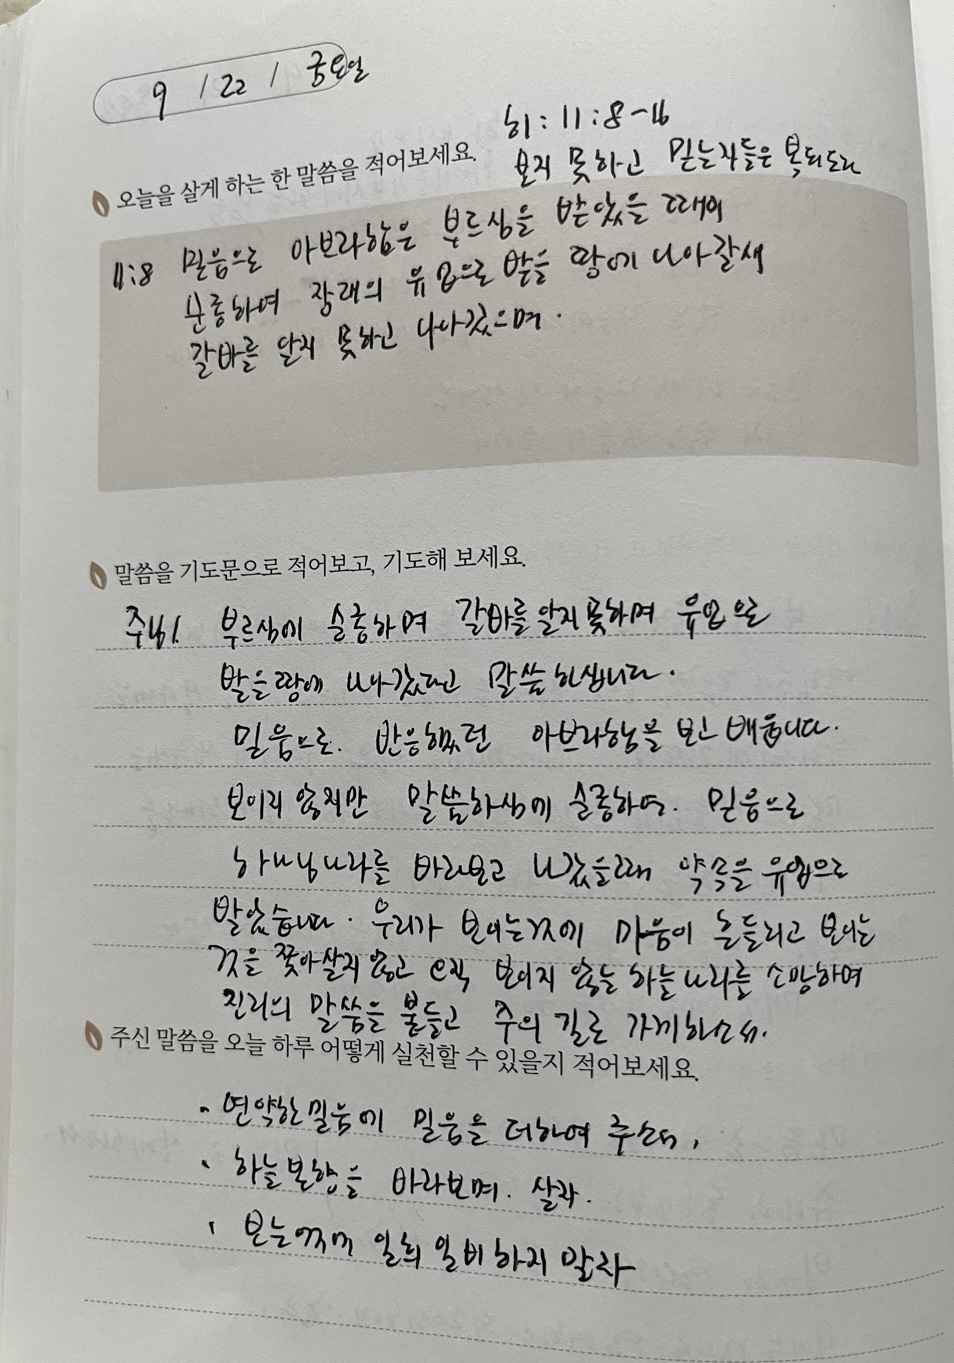 9 / 22 / 금요일
히: 11:8-16
보지 못하고 믿는자들은 복되도다
오늘을 살게 하는 한 말씀을 적어보세요.
11:8 믿음으로 아브라함은 부르심을 받았을 때에
순종하여 장래의 유업으로 받을 땅에 나아갈새
갈바를 알지 못하고 나아갔으며.
말씀을 기도문으로 적어보고, 기도해 보세요.
주님! 부르심에 순종하여 갈바를 알지 못하며 유업으로
받을 땅에 나아갔다고 말씀하십니다.
믿음으로. 반응했던 아브라함을 보고 배웁니다.
보이지 않지만 말씀하심에 순종하여. 믿음으로
하나님나라를 바라보고 나갔을때 약속을 유업으로
받았습니다. 우리가 보이는것에 마음이 흔들리고 보이는
것을 쫓아살지 않고 오직 보이지 않는 하늘나라를 소망하여
진리의 말씀을 붙들고 주의 길로 가게하소서.
주신 말씀을 오늘 하루 어떻게 실천할 수 있을지 적어보세요.
· 연약한믿음에 믿음을 더하여 주소서,
· 하늘본향을 바라보며. 살라.
· 보는것에 일희일비하지 말라